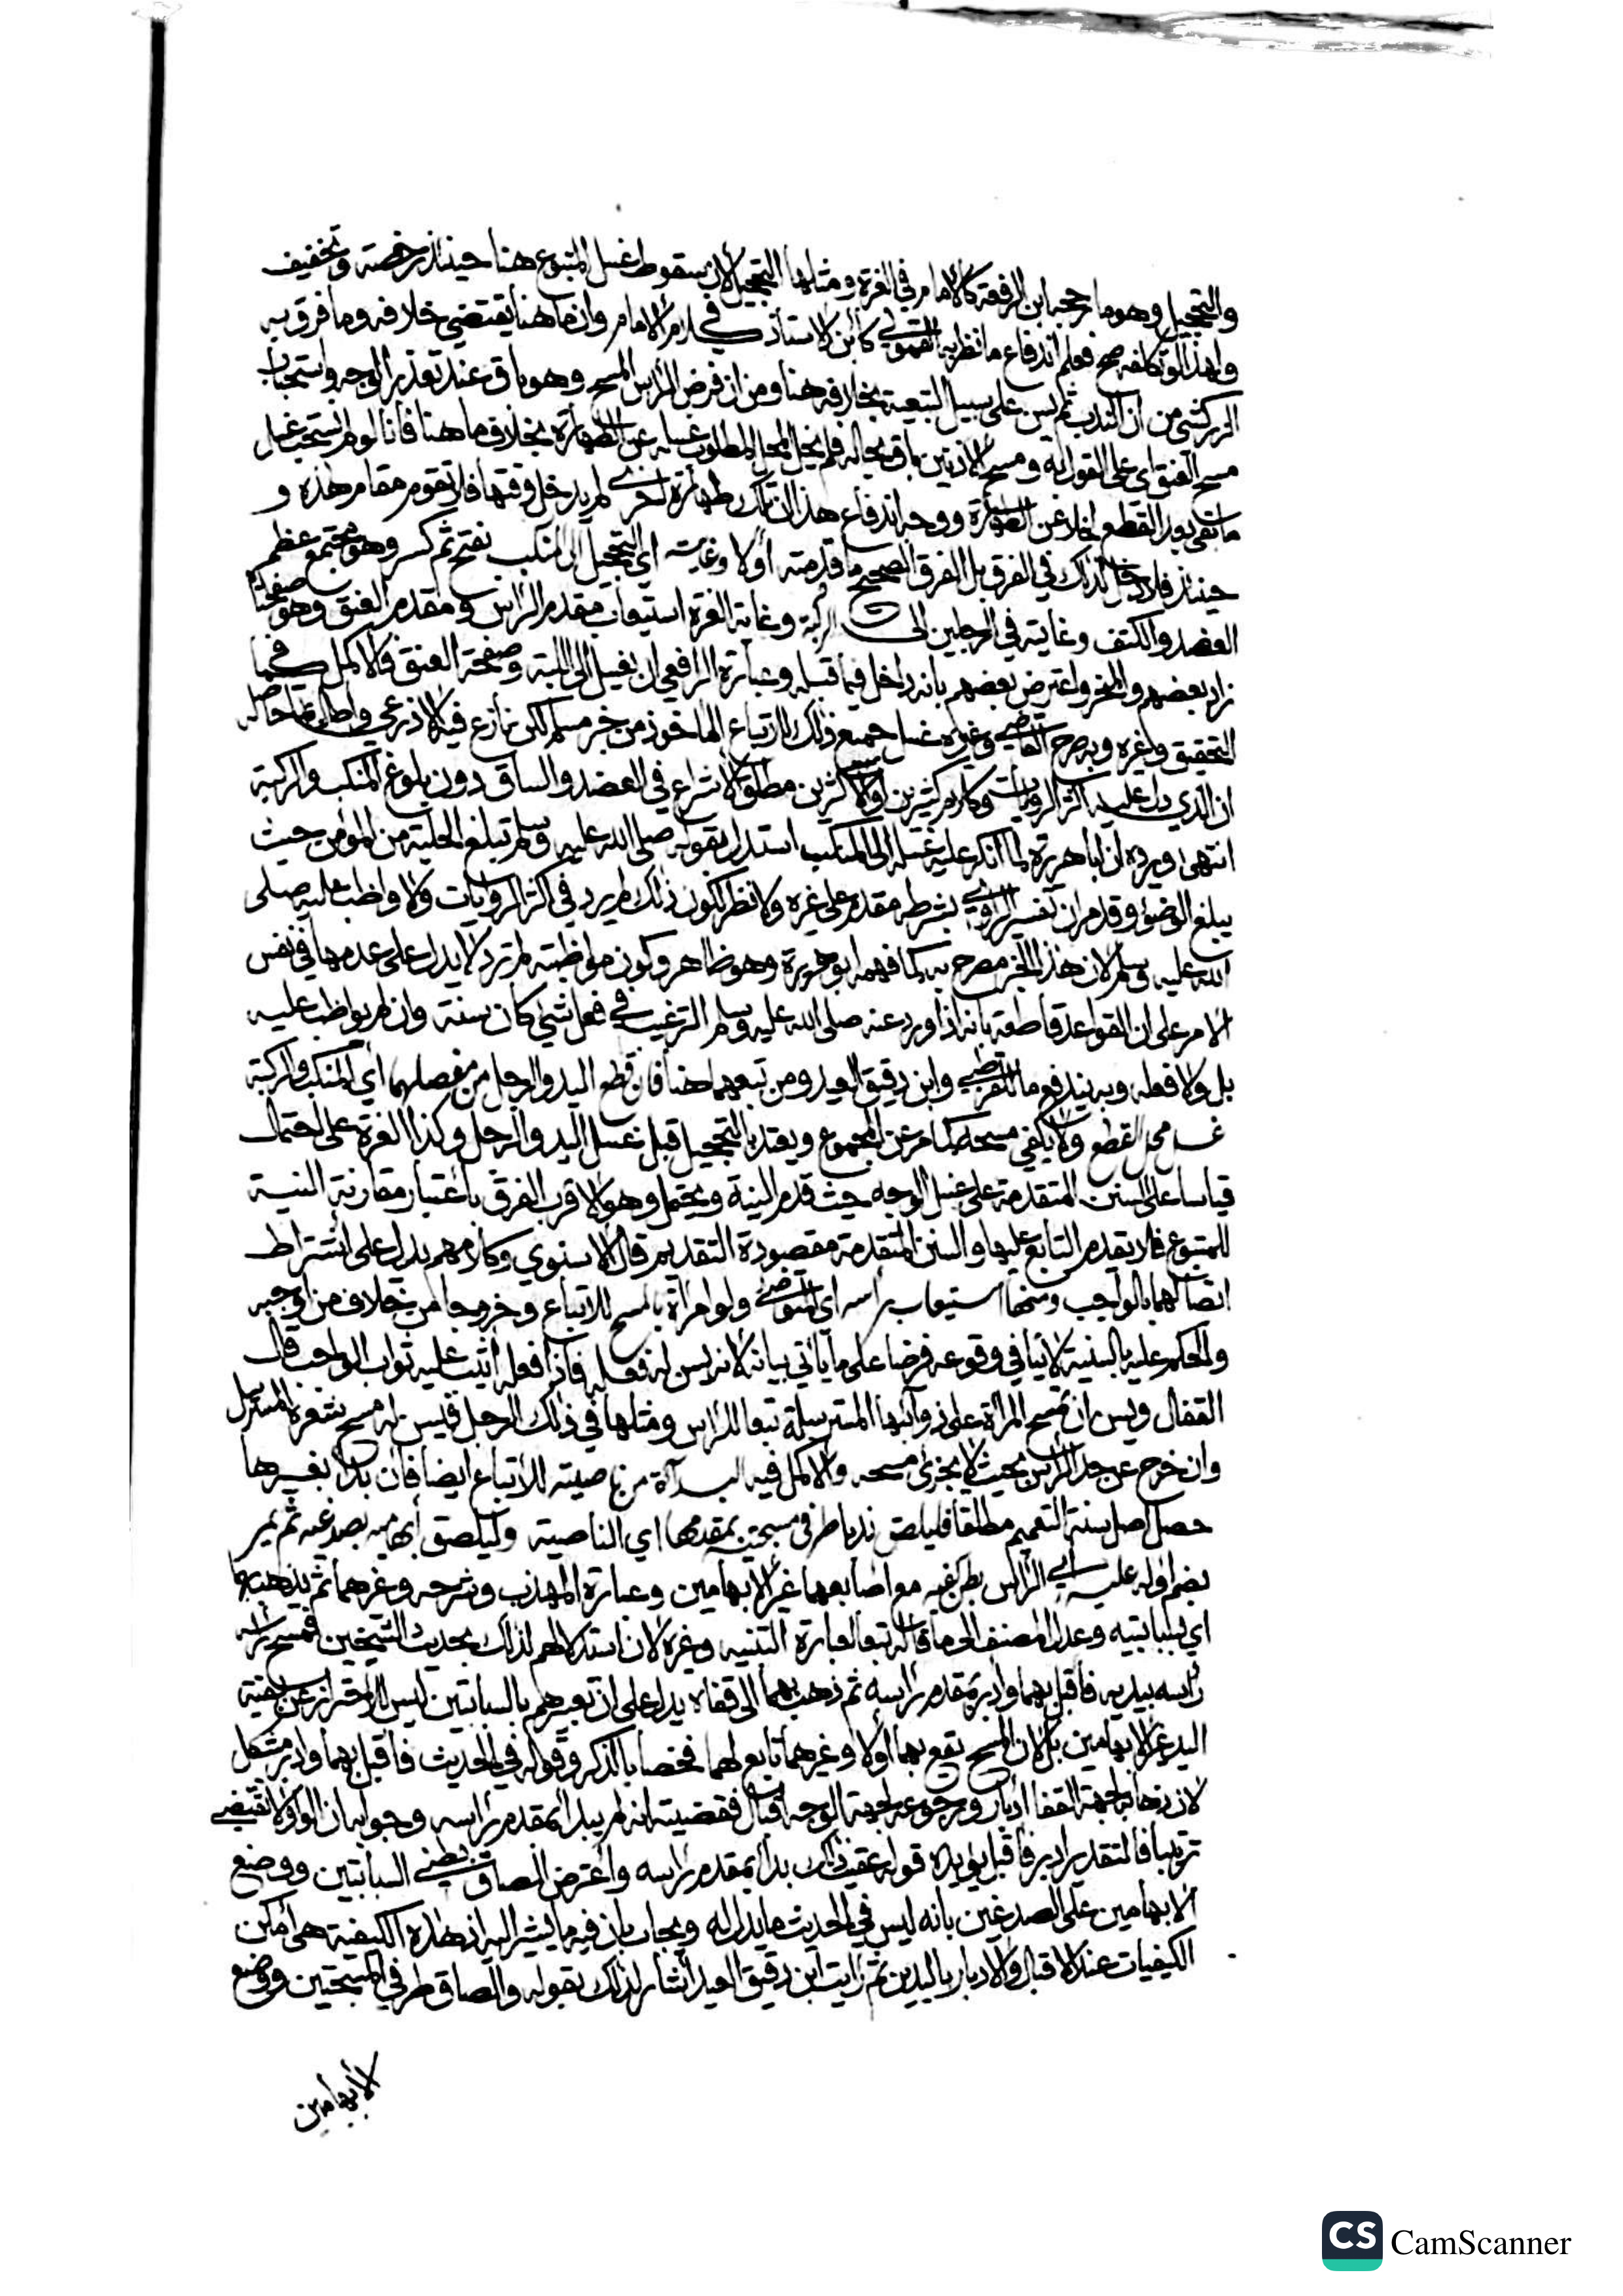 والتحجيل وهو ما رجحه ابن الرفعة كالامام في الغرة ومثلها التحجيل لان سقوط غسل المتبوع هنا حينئذ رخصة وتخفيف
ولهذا لو تكلفه صح فعلم اندفاع ما نظر به القمولي كابن الاستاذ في كلام الامام وان ما هنا يقتضي خلافه وما فرق به
الزركشي من ان الندب ثم ليس على سبيل التبعية بخلافه هنا ومن ان فرض الراس المسح وهو باق عند تعذر الوجه واستحباب
مسح العنق اي على القول به ومسح الاذنين باق بحاله فلم يخل المحل المطلوب غسله عن الطهارة بخلاف ما هنا فانا لو لم نستحب غسل
ما بقي بعد القطع لخلا عن الطهارة ووجه اندفاع هذا ان تلك طهارة اخرى لم يدخل وقتها فلا تقوم مقام هذه و
حينئذ فلا دخل لذلك في الفرق بل الفرق الصحيح ما قدمته اولا وغايته اي التحجيل الى المنكب بفتح ثم كسر وهو مجتمع عظم
العضد والكتف وغايته في الرجلين الى الركبة وغاية الغرة استيعاب مقدم الراس ومقدم العنق وهو صفحتا
زاد بعضهم والنحر واعترض بعضهم بانه داخل فيما قبله وعبارة الرافعي ان يغسل الى اللبة وصفحة العنق والاكمل كما في
التحقيق وغيره وبه صرح القاضي وغيره غسل جميع ذلك للاتباع الماخوذ من خبر مسلم لكن نازع فيه الاذرعي واطال بما حاصله
ان الذي دل عليه اكثر الروايات وكلام كثيرين او الاكثرين مطلق الاشراع في العضد والساق دون بلوغ المنكب والركبة
انتهى ويرده ان ابا هريرة لما انكر عليه غسله الى المنكب استدل بقوله صلى الله عليه وسلم تبلغ الحلية من المؤمن حيث
يبلغ الوضوء وقدم ان تفسير الراوي بشرطه مقدم على غيره ولا نظر لكون ذلك لم يرد في اكثر الروايات ولا واظب عليه صلى
الله عليه وسلم لان هذا الخبر مصرح به كما فهمه ابو هريرة وهو ظاهر وكون مواظبته لم ترد لا يدل على عدمها في نفس
الامر على ان القواعد قاطعة بانه اذا ورد عنه صلى الله عليه وسلم الترغيب في فعل شي كان سنة وان لم يواظب عليه
بل ولا فعله وبه يندفع ما للقرطبي وابن دقيق العيد ومن تبعهما هنا فان قطع اليد والرجل من مفصلهما اي المنكب والركبة
غسل محل القطع ولا يكفي مسحه كما مر عن المجموع ويعتد بالتحجيل قبل غسل اليد والرجل وكذا الغرة على احتمال
قياسا على السنن المتقدمة على غسل الوجه حيث قدم النية ويحتمل وهو الاقرب الفرق باعتبار مقارنة النية
للمتبوع فلا يقدم التابع عليها والسنن المتقدمة مقصودة التقديم قال الاسنوي وكلامهم يدل على اشتراط
اتصالهما بالواجب ومنها استيعاب راسه اي المتوضي ولو امراة بالمسح للاتباع وخروجا من خلاف من اوجبه
والحكم عليه بالسنية لا ينافي وقوعه فرضا على ما ياتي بيانه لانه ليس له فعله فاذا فعله اثيب عليه ثواب الواجب قال
القفال ويسن ان تمسح المراة على ذوائبها المسترسلة تبعا للراس ومثلها في ذلك الرجل فيسن له مسح شعره المسترسل
وان خرج عن حد الراس بحيث لا يجزئ مسحه والاكمل فيه البداة من ناصيته للاتباع ايضا فان بدا بغيرها
حصل اصل سنة التعميم مطلقا فليلصق ندبا طرفي مسبحتيه بمقدمها اي الناصية وليلصق ابهاميه بصدغيه ثم يمر
بضم اوله عليه اي الراس بطن كفيه مع اصابعهما غير الابهامين وعبارة المهذب وشرحه وغيرهما ثم يذهب بهما
اي بسبابتيه وعدل المصنف الى ما قاله تبعا لعبارة التنبيه وغيره لان استدلالهم لذلك بحديث الشيخين فمسح براسه
راسه بيديه فاقبل بهما وادبر بمقدم راسه ثم ذهب بهما الى قفاه يدل على ان تعبيرهم بالسبابتين ليس للاحتراز عن بقية
اليد غير الابهامين بل لان المسح يقع بهما اولا وغيرهما تابع لهما فخصا بالذكر وقوله في الحديث فاقبل بهما وادبر مشكل
لان ذهابه لجهة القفا ادبار ورجوعه لجهة الوجه اقبال فقضيته انه لم يبدا بمقدم راسه وجوابه ان الواو لا تقتضي
ترتيبا فالتقدير ادبر فاقبل يؤيده قوله عقيب ذلك بدا بمقدم راسه واعترض الصاق السبابتين ووضع
الابهامين على الصدغين بانه ليس في الحديث ما يدل له ويجاب بان فيه ما يشير اليه اذ هذه الكيفية هي امكن
الكيفيات عند الاقبال والادبار باليدين ثم رايت ابن دقيق العيد اشار لذلك بقوله والصاق طرفي المسبحتين ووضع
الابهامين
CS CamScanner